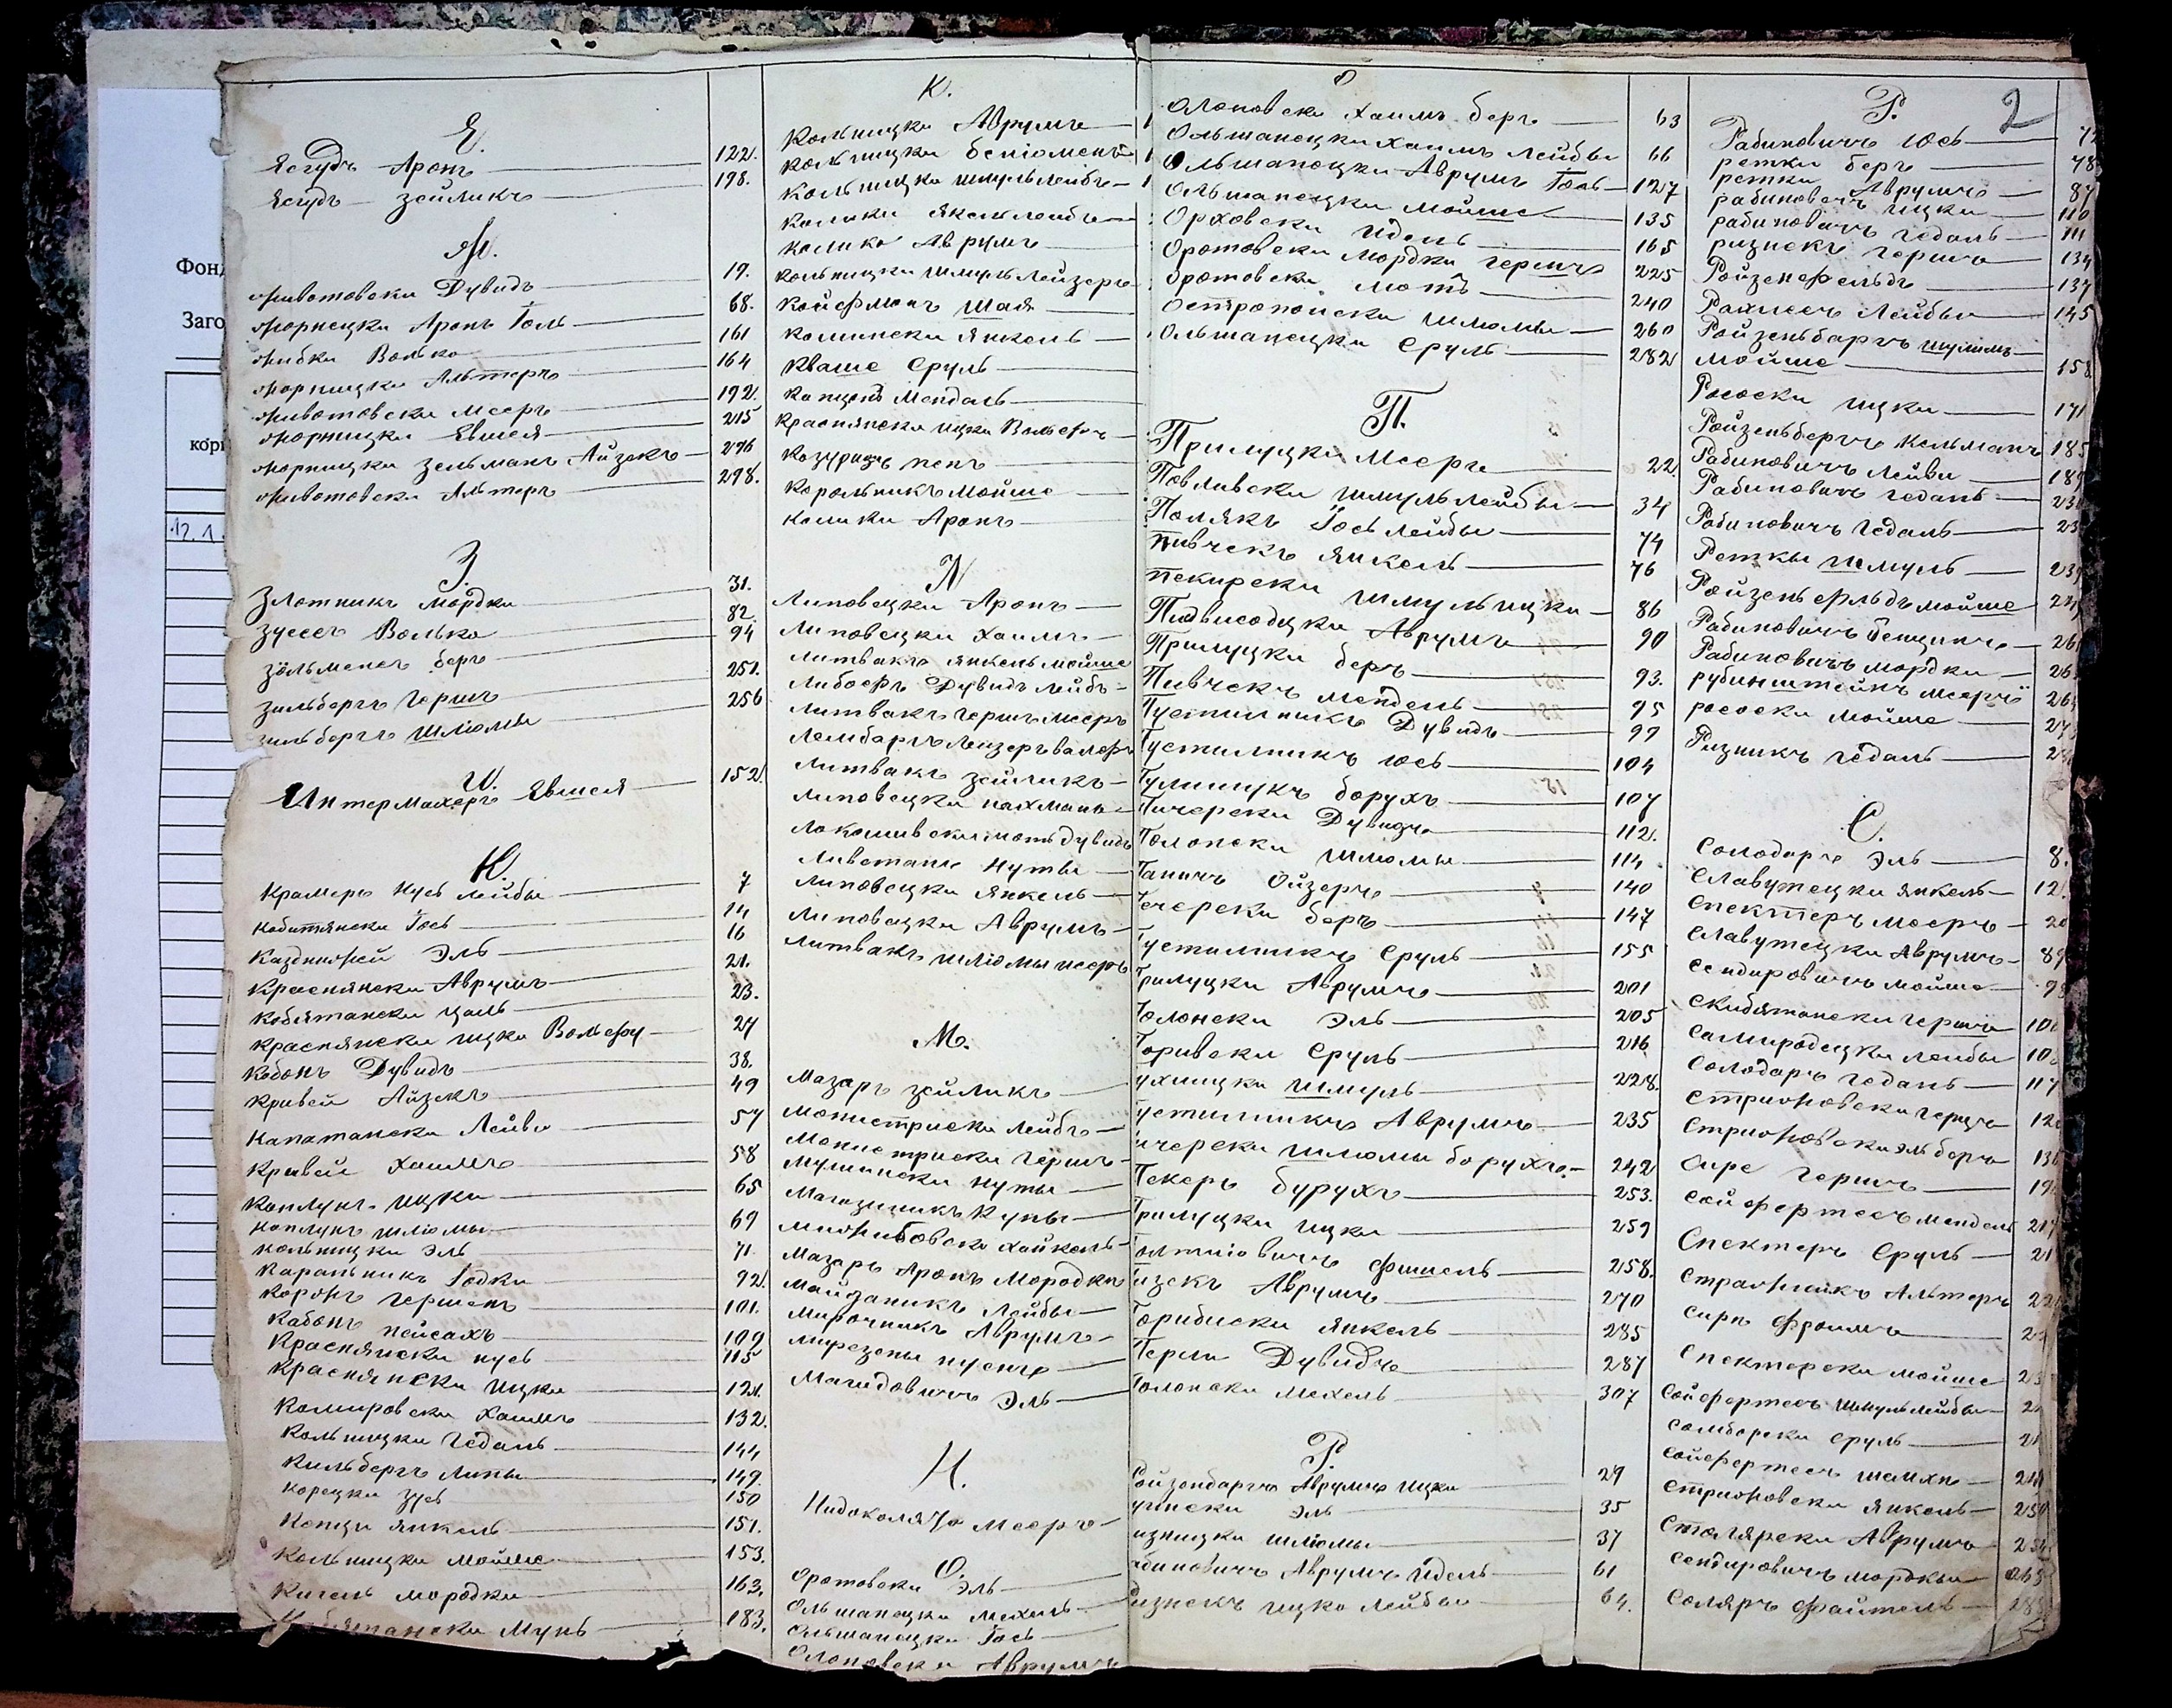 Фонд
Заго
кор
Е.
Ягудъ Аронъ 122.
Ягудъ зейликъ 198.
Ж.
Животовски Дувидъ 19.
Жорнецки Аронъ Голь 68.
Жибки Волько 161
Жорницки Альтеръ 164
Животовски Мееръ 192.
Жорницки Евшея 215
Жорницки Зельманъ Айзекъ 276
Животовски Альтеръ 298.
З.
Злотникъ Мордки 31.
Зуссеъ Волько 82.
Зольменсъ беръ 94
Зильбергъ Гершъ 251.
Зильбергъ Шлiомы 256
И.
Интермахеръ Евшея 152.
К.
Крамеръ Нусь Лейбы 7
Кобитянски Iось 14
Казднижей Эль 16
Краснянски Аврумъ 21.
Кобятански Цаль 23.
Краснянски Ицки Вольфу 27
Кобонъ Дувидъ 38.
Кривей Айзекъ 49
Капатански Лейви 57
Кривей Хаимъ 58
Каплунъ Ицки 65
Каплунъ Шлiомы 69
Кольницки Эль 71
Каральникъ Годки 92.
Коронъ Гершенъ 101.
Кабонъ Пейсахъ 109
Краснянски Нусь 115
Краснянски Ицки 121.
Комировски Хаимъ 132.
Кольницки Гедаль 144
Кильбергъ Липы 149.
Корецки Зусь 150
Копци Янкель 151.
Кольницки Мойше 153.
Кигель Мородки 163.
Мунь 183.
К.
Кольницки Аврумъ
Кольницки Бенiоменъ
Кольницки Шмуль Лейбъ
Колики Янкель Лейбъ
Колико Аврумъ
Кольницки Шмуль Лейзеръ
Койфманъ Шая
Комински Янкель
Кваше Сруль
Копцонъ Мендаль
Краснянски Ицки Вольфъ
Корольникъ Мойше
Колики Аронъ
Л
Липовецки Аронъ
Липовецки Хаимъ
Литвакъ Янкель Мойше
Либоеръ Дувидъ Лейбъ
Литвакъ Гершъ Мееръ
Лембаргъ Лейзеръ Вальфъ
Литвакъ Зейликъ
Липовецки Нахманъ
Локошивски Моть Дувидъ
Ливетанъ Нуты
Липовецки Янкель
Липовецки Аврумъ
Литвакъ Шлiомы Мееръ
М.
Мазаръ Зейликъ
Монистриски Лейбъ
Монистриски Гершъ
Мушински Нуты
Магазиникъ Купы
Мижибовски Хайкель
Мазаръ Аронъ Мородки
Майданикъ Лейбы
Мирочникъ Аврумъ
Магидовичъ Эль
Н.
Мееръ
О.
Оратовски Эль
Ольшанецки Мехель
Ольшанецки Iось
Олоновски Аврумъ
О
Олоновски Хаимъ беръ 63
Ольшанецки Хаимъ Лейбы 66
Ольшанецки Аврумъ Гоель 127
Ольшанецки Мойше 135
Орховски Идель 165
Оротовски Мордки Гершъ 225
Оротовски Моть 240
Остропоиски Шлюмы 260
Ольшанецки Сруль 282
П.
Прилуцки Мееръ 22
Повливски Шмуль Лейбы 34
Полякъ Iось Лейбы 74
Пивчекъ Янкель 76
Пекирски Шмуль Ицки 86
Пидвисоцки Аврумъ 90
Прилуцки беръ 93.
Пивчекъ Мендель 95
Пустильникъ Дувидъ 97
Пустилникъ Юсь 104
Борухъ 107
Пичерски Дувидъ 112.
Полонски Шлюмы 114
Паничъ Ойзеръ 140
Печерски беръ 147
Пустилникъ Сруль 155
Прилуцки Аврумъ 201
Полонски Эль 205
Поривски Сруль 216
Шмуль 228.
Пустилникъ Аврумъ 235
Пичерски Шлюмы борухъ 242
Пекеръ Бурухъ 253.
Прилуцки Ицки 259
Фишель 258.
Аврумъ 270
Янкель 285
Дувидъ 287
Полонски Мехель 307
Р.
Ройзонбаргъ Аврумъ Ицки 29
Эль 35
Шлюмы 37
Рабиновичъ Аврумъ Идель 61
Ризнекъ Ицко Лейбы 64.
Р. 2
Рабиновичъ Юсь 72
Ретки беръ 78
Ретки Аврумъ 87
Рабиновичъ Ицки 110
Рабиновичъ Гедаль 111
Ризнекъ Герша 134
Ройзенфельдъ 137
Рахлесъ Лейбы 145
Ройзеньбаргъ Шулимъ
Мойше 158
Рососки Ицки 171
Ройзеньбергъ Кельманъ 185
Рабиновичъ Лейви 189
Рабиновичъ Гедаль 230
Рабиновичъ Гедаль 23
Реткы Шмуль 239
Ройзеньфельдъ Мойше 24
Рабиновичъ Бенционъ 26
Рабиновичъ Мордки 26
Рубинштейнъ Мееръ 264
Рососки Мойше 27
Ризникъ Гедаль 2
С.
Солодаръ Эль 8.
Славутецки Янкель 12.
Спектеръ Мееръ 20
Славутецки Аврумъ 89
Сендировичъ Мойше 9
Скибятански Герша 10
Самиродецки Лейбы 10
Солодаръ Гедаль 117
Стрижовски Гершъ 12
Стрижовски Эль беръ 13
Сирс Гершъ 19
Сойфертесъ Мендель 217
Спектеръ Сруль 21
Стражникъ Альтеръ 22
Сирсъ Фроимъ 2
Спектерски Мойше 23
Сойфертесъ Шмуль Лейбы 2
Самборски Сруль 2
Сойфертесъ Шамхи 24
Стрижовски Янкель 250
Столярски Аврумъ 254
Сендировичъ Мородкы 265
Соляръ Файтель 285